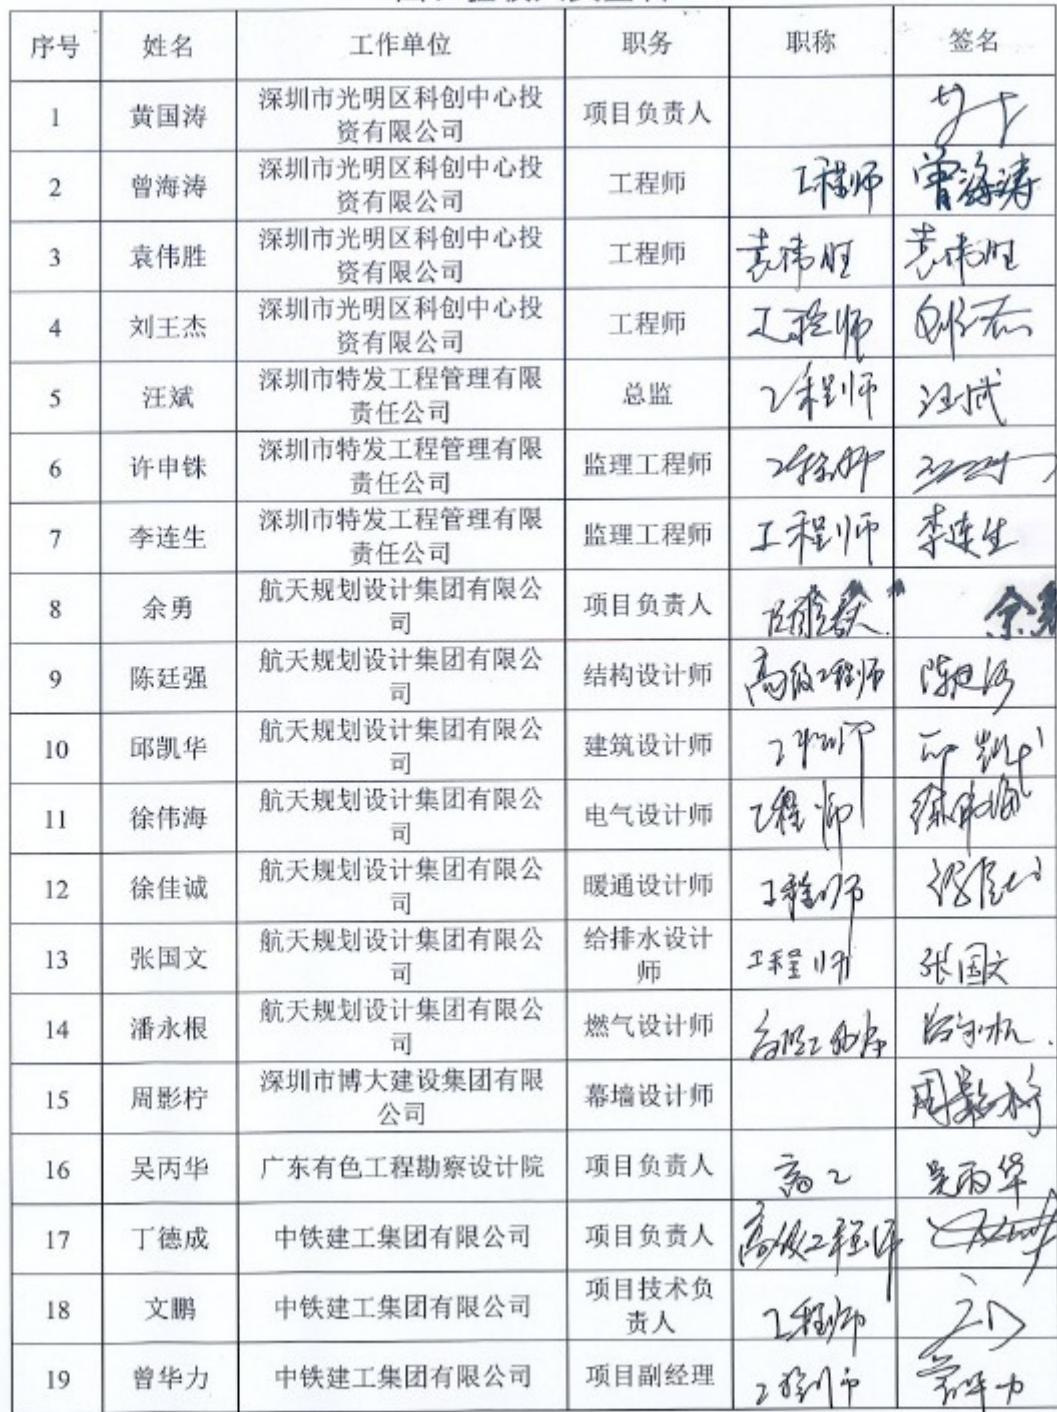 序号 姓名 工作单位 职务 职称 签名
1 黄国涛 深圳市光明区科创中心投资有限公司 项目负责人
2 曾海涛 深圳市光明区科创中心投资有限公司 工程师 工程师 曾海涛
3 袁伟胜 深圳市光明区科创中心投资有限公司 工程师 袁伟胜 袁伟胜
4 刘王杰 深圳市光明区科创中心投资有限公司 工程师 工程师
5 汪斌 深圳市特发工程管理有限责任公司 总监 工程师 汪斌
6 许申铢 深圳市特发工程管理有限责任公司 监理工程师 工程师
7 李连生 深圳市特发工程管理有限责任公司 监理工程师 工程师 李连生
8 余勇 航天规划设计集团有限公司 项目负责人 余勇
9 陈廷强 航天规划设计集团有限公司 结构设计师 高级工程师 陈廷强
10 邱凯华 航天规划设计集团有限公司 建筑设计师 工程师 邱凯华
11 徐伟海 航天规划设计集团有限公司 电气设计师 工程师 徐伟海
12 徐佳诚 航天规划设计集团有限公司 暖通设计师 工程师
13 张国文 航天规划设计集团有限公司 给排水设计师 工程师 张国文
14 潘永根 航天规划设计集团有限公司 燃气设计师 高级工程师
15 周影柠 深圳市博大建设集团有限公司 幕墙设计师 周影柠
16 吴丙华 广东有色工程勘察设计院 项目负责人 高工 吴丙华
17 丁德成 中铁建工集团有限公司 项目负责人 高级工程师
18 文鹏 中铁建工集团有限公司 项目技术负责人 工程师
19 曾华力 中铁建工集团有限公司 项目副经理 工程师 曾华力